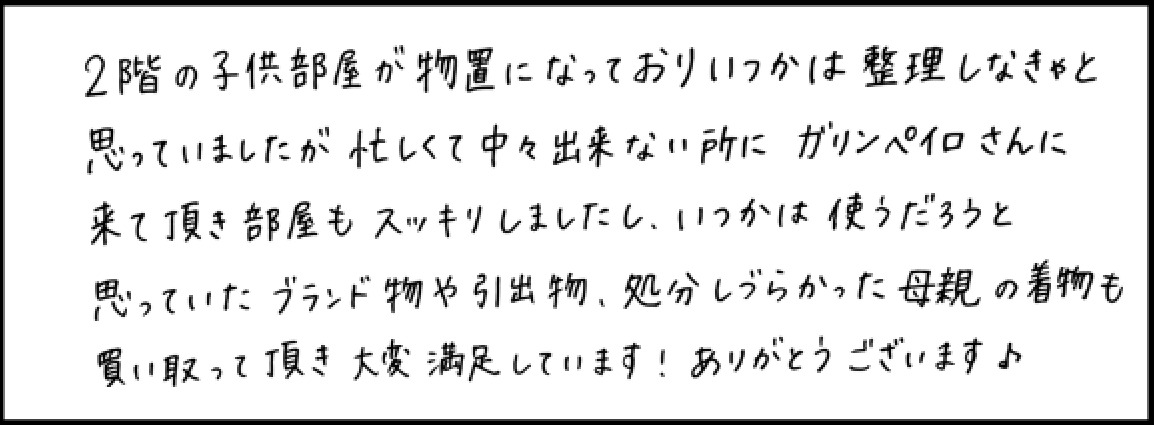 2階の子供部屋が物置になっておりいつかは整理しなきゃと
思っていましたが忙しくて中々出来ない所に ガリンペイロさんに
来て頂き部屋もスッキリしましたし、いつかは使うだろうと
思っていたブランド物や引出物、処分しづらかった母親の着物も
買い取って頂き大変満足しています!ありがとうございます♪